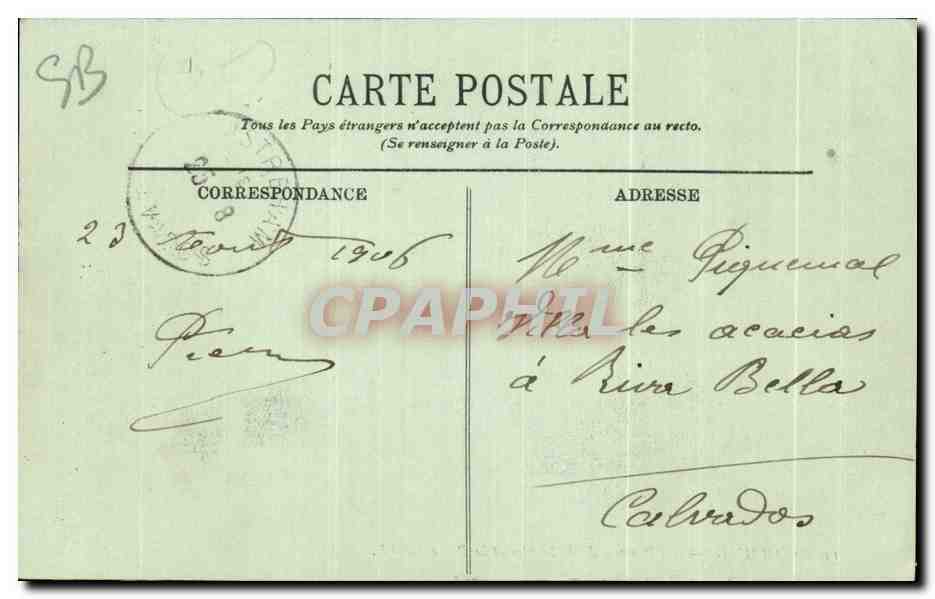 GB
CARTE POSTALE
Tous les Pays étrangers n'acceptent pas la Correspondance au recto.
(Se renseigner à la Poste).
CORRESPONDANCE
23 Aout 1906
Pierre
ADRESSE
Mme Piquemal
Villa les acacias
à Riva Bella
Calvados
CPAPHIL